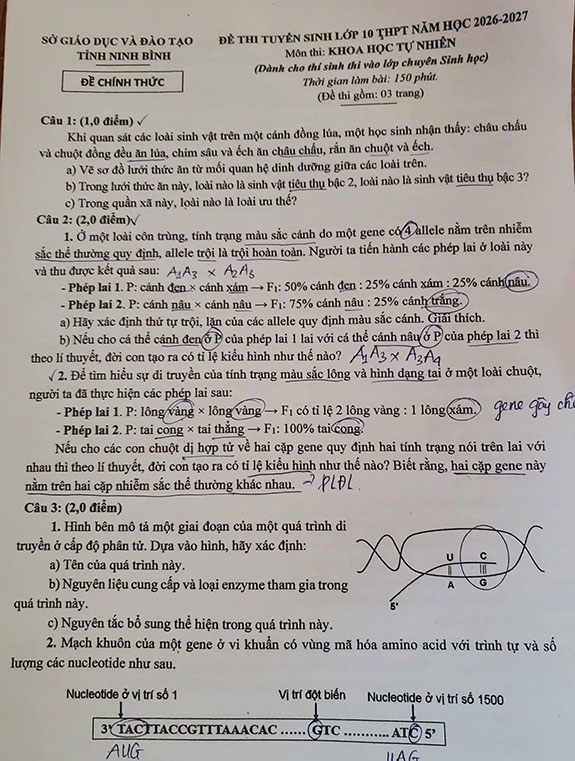 SỞ GIÁO DỤC VÀ ĐÀO TẠO
TỈNH NINH BÌNH
ĐỀ CHÍNH THỨC
ĐỀ THI TUYỂN SINH LỚP 10 THPT NĂM HỌC 2026-2027
Môn thi: KHOA HỌC TỰ NHIÊN
(Dành cho thí sinh thi vào lớp chuyên Sinh học)
Thời gian làm bài: 150 phút.
(Đề thi gồm: 03 trang)
Câu 1: (1,0 điểm) ✓
Khi quan sát các loài sinh vật trên một cánh đồng lúa, một học sinh nhận thấy: châu chấu
và chuột đồng đều ăn lúa, chim sâu và ếch ăn châu chấu, rắn ăn chuột và ếch.
a) Vẽ sơ đồ lưới thức ăn từ mối quan hệ dinh dưỡng giữa các loài trên.
b) Trong lưới thức ăn này, loài nào là sinh vật tiêu thụ bậc 2, loài nào là sinh vật tiêu thụ bậc 3?
c) Trong quần xã này, loài nào là loài ưu thế?
Câu 2: (2,0 điểm) ✓
1. Ở một loài côn trùng, tính trạng màu sắc cánh do một gene có 4 allele nằm trên nhiễm
sắc thể thường quy định, allele trội là trội hoàn toàn. Người ta tiến hành các phép lai ở loài này
và thu được kết quả sau: A1A3 × A2A3
- Phép lai 1. P: cánh đen × cánh xám → F₁: 50% cánh đen : 25% cánh xám : 25% cánh nâu.
- Phép lai 2. P: cánh nâu × cánh nâu → F₁: 75% cánh nâu : 25% cánh trắng.
a) Hãy xác định thứ tự trội, lặn của các allele quy định màu sắc cánh. Giải thích.
b) Nếu cho cá thể cánh đen ở P của phép lai 1 lai với cá thể cánh nâu ở P của phép lai 2 thì
theo lí thuyết, đời con tạo ra có tỉ lệ kiểu hình như thế nào? A1A3 × A3A4
✓ 2. Để tìm hiểu sự di truyền của tính trạng màu sắc lông và hình dạng tai ở một loài chuột,
người ta đã thực hiện các phép lai sau:
- Phép lai 1. P: lông vàng × lông vàng → F₁ có tỉ lệ 2 lông vàng : 1 lông xám. gene gây
- Phép lai 2. P: tai cong × tai thẳng → F₁: 100% tai cong.
Nếu cho các con chuột dị hợp tử về hai cặp gene quy định hai tính trạng nói trên lai với
nhau thì theo lí thuyết, đời con tạo ra có tỉ lệ kiểu hình như thế nào? Biết rằng, hai cặp gene này
nằm trên hai cặp nhiễm sắc thể thường khác nhau. → PLĐL
Câu 3: (2,0 điểm)
1. Hình bên mô tả một giai đoạn của một quá trình di
truyền ở cấp độ phân tử. Dựa vào hình, hãy xác định:
a) Tên của quá trình này.
b) Nguyên liệu cung cấp và loại enzyme tham gia trong
quá trình này.
c) Nguyên tắc bổ sung thể hiện trong quá trình này.
U C
A G
5'
2. Mạch khuôn của một gene ở vi khuẩn có vùng mã hóa amino acid với trình tự và số
lượng các nucleotide như sau.
Nucleotide ở vị trí số 1 Vị trí đột biến Nucleotide ở vị trí số 1500
3' TACTTACCGTTTAAACAC ...... GTC ........... ATC 5'
AUG UAG